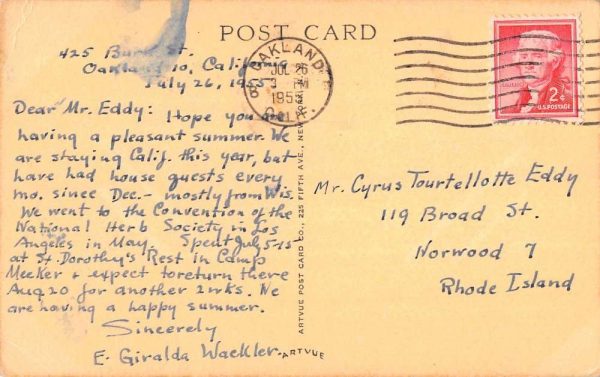 POST CARD
425 St.
Oakland 10, California
July 26, 1955
Dear Mr. Eddy: Hope you are
having a pleasant summer. We
are staying Calif. this year, but
have had house guests every
mo. since Dec.- mostly from Wis.
We went to the Convention of the
National Herb Society in Los
Angeles in May. Spent July 5-15
at St. Dorothy's Rest in Camp
Meeker & expect to return there
Aug 20 for another 2 wks. We
are having a happy summer.
Sincerely
E. Giralda Wackler.
OAKLAND
JUL 26
PM
1955
CALIF.
2¢
U.S. POSTAGE
Mr. Cyrus Tourtellotte Eddy
119 Broad St.
Norwood 7
Rhode Island
ARTVUE POST CARD CO., 225 FIFTH AVE., NEW YORK
ARTVUE